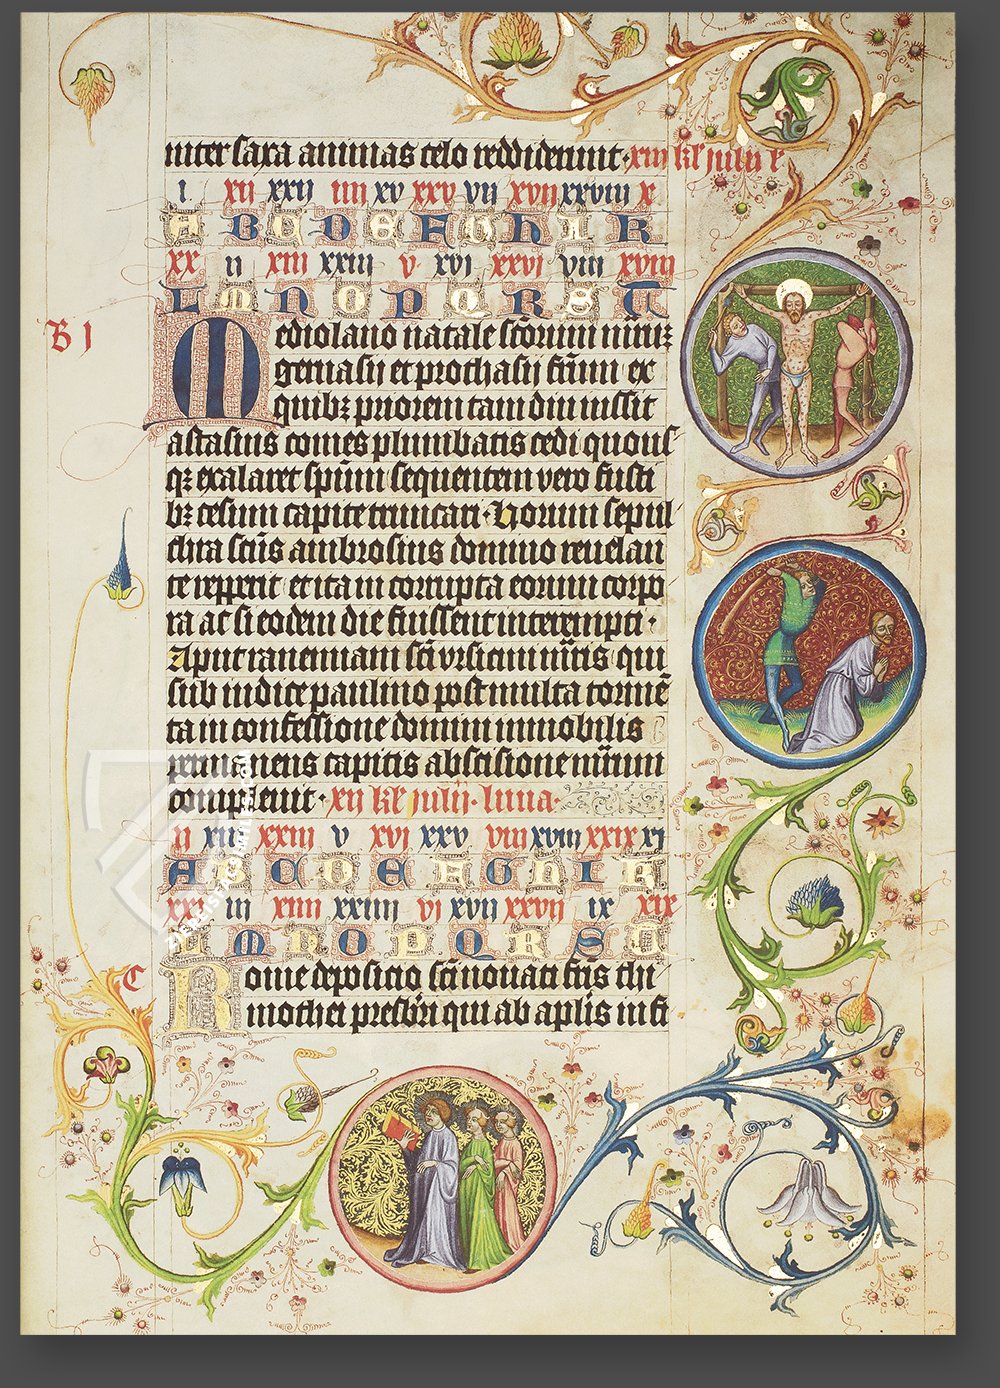 inter saxa animas celo reddiderunt · xiii kł julii e
i xii xxii iiii xv xxv vii xvii xxviii x
A B C D E F G H I K
xx ii xiii xxiii v xvi xxvi viii xviii
L M N O P Q R S T
B J
Mediolano natale sc̄orum m̄rum
geruasij et prothasij fr̄um ex
quibꝫ priorem tam diu iussit
astasius comes plumbatis cedi quous
qꝫ exalaret sp̄um sequentem vero fusti
bꝫ cesum capite truncari · Horum sepul
chra sc̄us ambrosius domino reuelan
te repperit et ita in corrupta eorum corpo
ra ac si eodem die fuissent interempti ·
Aput rauennam sc̄i vrsicini m̄ris qui
sub iudice paulino post multa tormē
ta in confessione domini inmobilis
permanens capitis abscisione m̄rium
compleuit · xii kł julii · luna ·
ii xiii xxiii v xvi xxv viii xviii xxix xi
A B C D E F G H I K
xxi iii xiiii xxiiii vi xvii xxvii ix xix
L M N O P Q R S T
C
Rome deposicio sc̄i nouati fr̄is thi
mothei presbr̄i qui ab apl̄is in fi